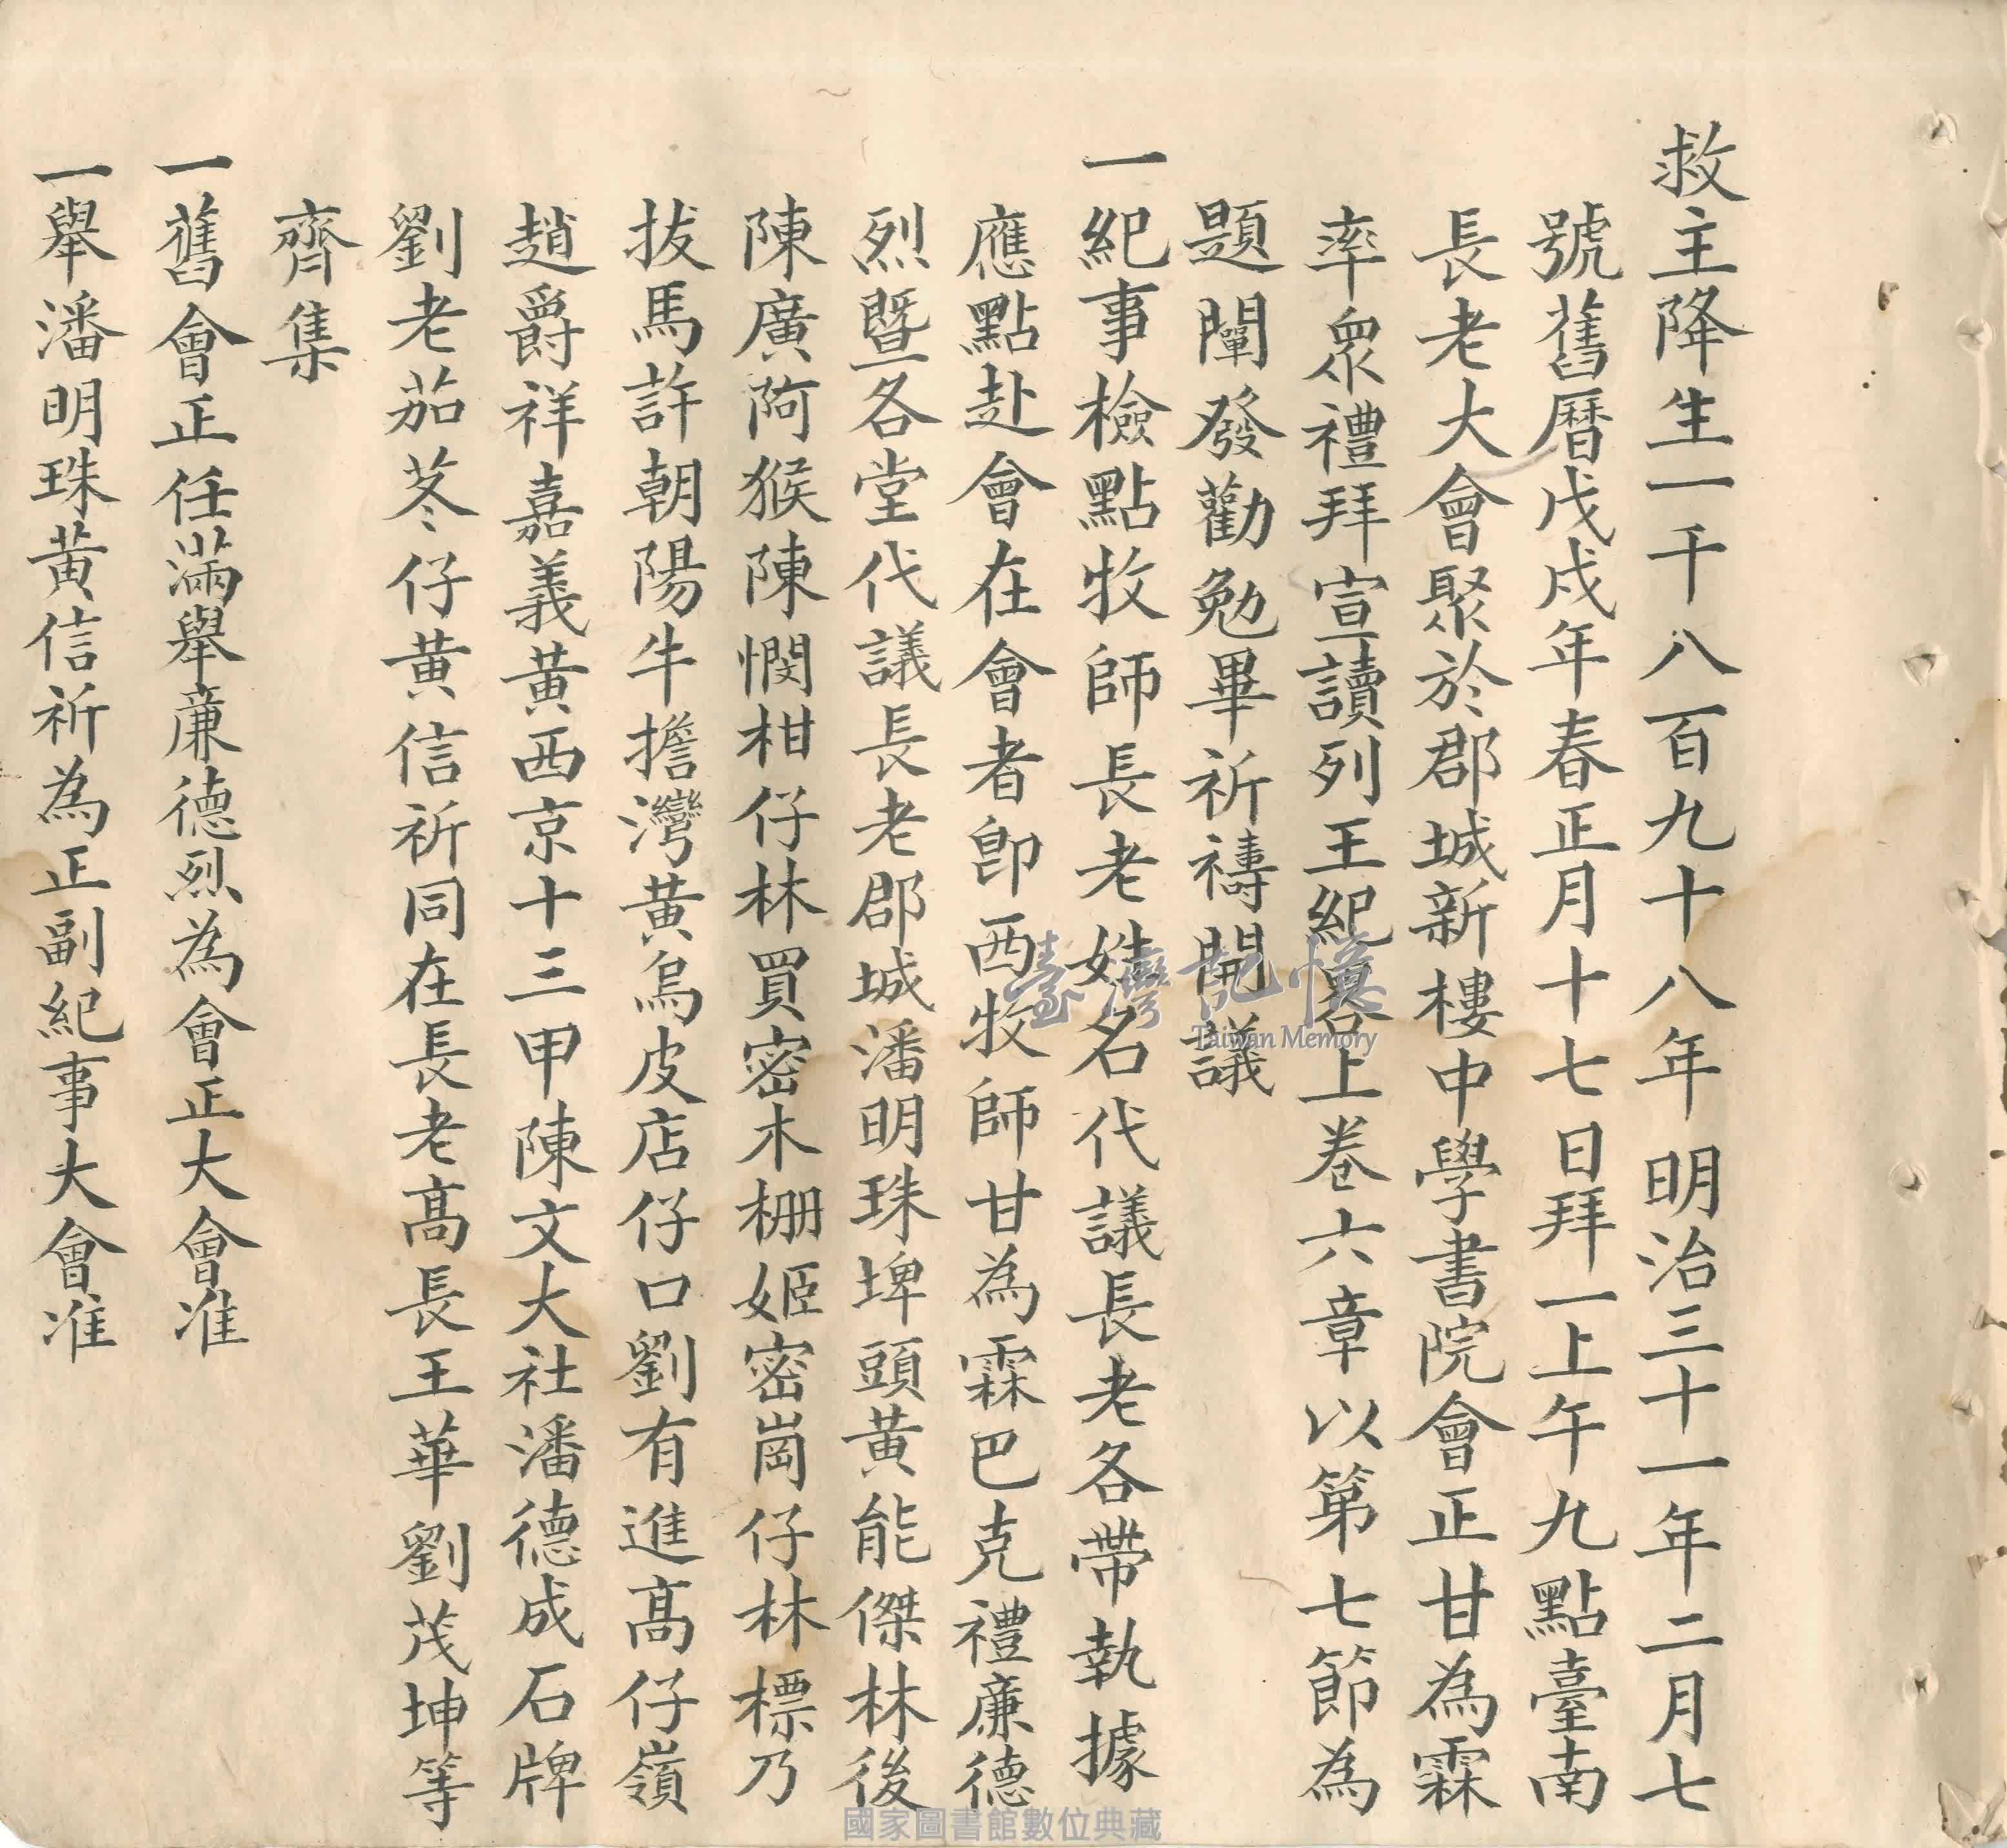 救主降生一千八百九十八年明治三十一年二月七
號舊曆戊戌年春正月十七日拜一上午九點臺南
長老大會聚於郡城新樓中學書院會正甘為霖
率眾禮拜宣讀列王紀畧上卷六章以第七節為
題闡發勸勉畢祈禱開議
一紀事檢點牧師長老姓名代議長老各帶執據
應點赴會在會者卽西牧師甘為霖巴克禮廉德
烈暨各堂代議長老郡城潘明珠埤頭黃能傑林後
陳廣阿猴陳憫柑仔林買密木栅姬密崗仔林標乃
拔馬許朝陽牛擔灣黃烏皮店仔口劉有進高仔嶺
趙爵祥嘉義黃西京十三甲陳文大社潘德成石牌
劉老茄苳仔黃信祈同在長老高長王華劉茂坤等
齊集
一舊會正任滿舉廉德烈為會正大會准
一舉潘明珠黃信祈為正副紀事大會准
臺灣記憶
Taiwan Memory
國家圖書館數位典藏